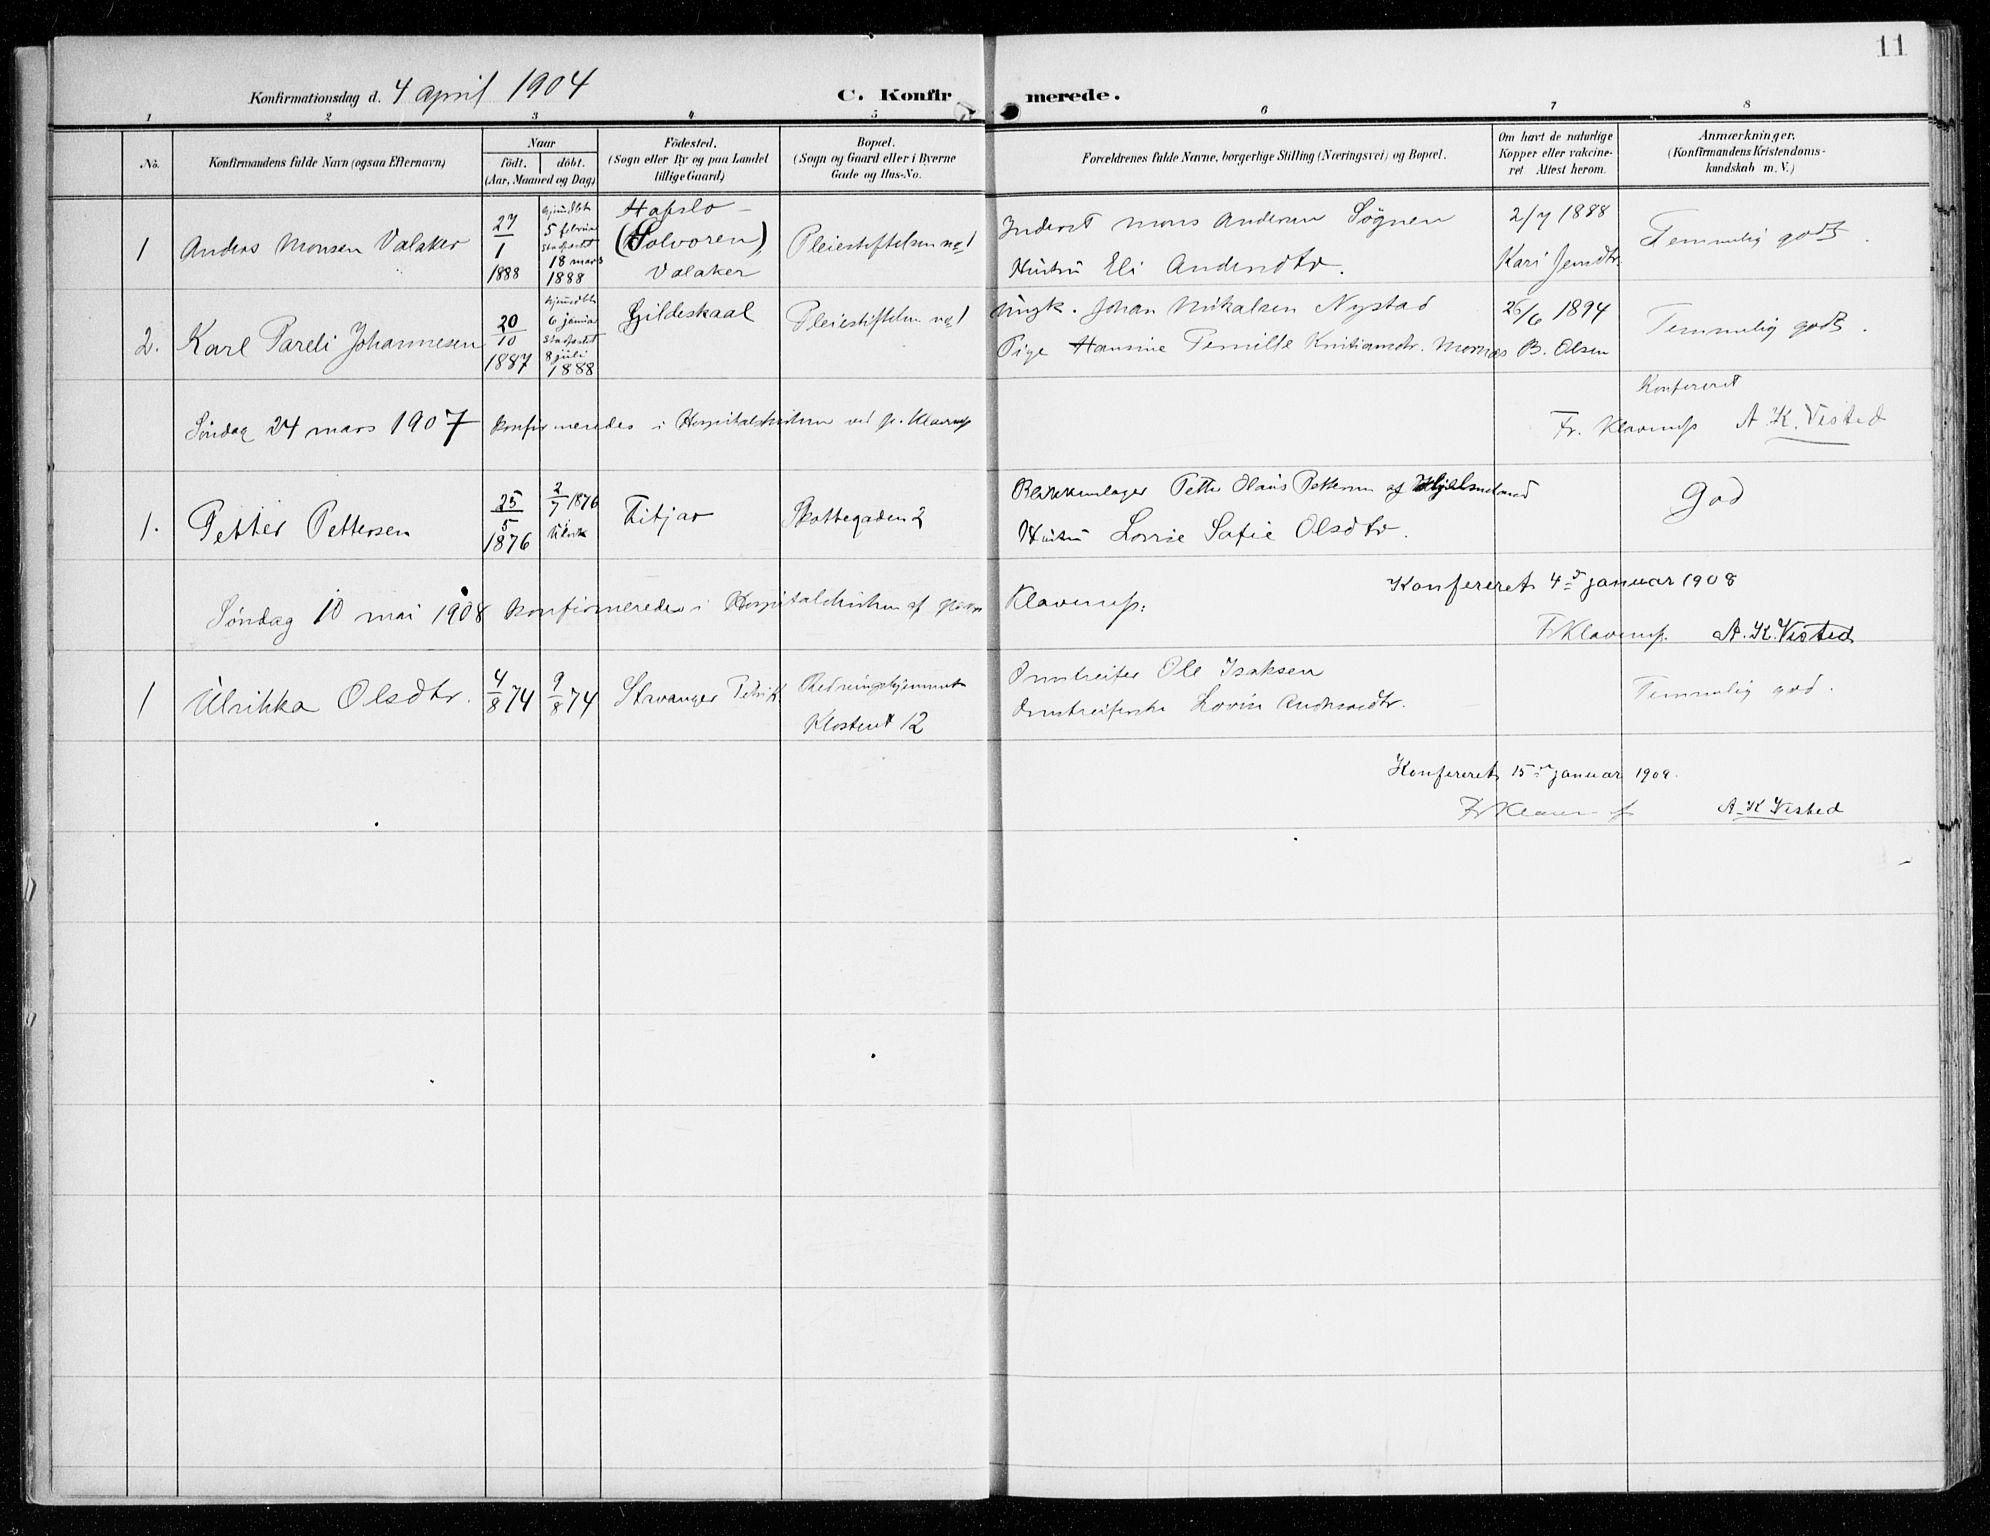 11
Konfirmationsdag d. 4 april 1904
C. Konfirmerede.
1 2 3 4 5 6 7 8
No.
Konfirmandens fulde Navn (ogsaa Efternavn)
Naar
födt. döbt.
(Aar, Maaned og Dag)
Födested.
(Sogn eller By og paa Landet
tillige Gaard)
Bopæl.
(Sogn og Gaard eller i Byerne
Gade og Hus-No.
Forældrenes fulde Navne, borgerlige Stilling (Næringsvei) og Bopæl.
Om havt de naturlige
Kopper eller vakcine-
ret Attest herom.
Anmærkninger.
(Konfirmandens Kristendoms-
kundskab m. V.)
1 Anders Monsen Valaker
27/1 1888
hjemdbt 5 februar
stadfæstet 18 mars 1888
Hafslo -
(Solvoren)
Valaker
Pleiestiftelsen no 1
Inderst Mons Andersen Sögnen
Hustru Eli Andersdtr.
2/7 1888
Kari Jensdtr.
Temmelig godt.
2. Karl Pareli Johannesen
20/10 1887
hjemdbt 6 januar
stadfæstet 8 juli 1888
Gildeskaal
Pleiestiftelsen no 1
Ungk. Johan Mikalsen Nystad
Pige Hansine Pernille Kristiansdtr. Mornæs
26/6 1894
B. Olsen
Temmelig godt.
Søndag 24 mars 1907 konfirmeredes i Hospitalskirken ved sp. Klaverness
Konfereret
Fr. Klaverness A. K. Visted
1. Petter Pettersen
25/5 1876
2/7 1876
Fitjar
Skottegaden 2
Blikkenslager Petter Hans Pettersen af Hjelmeland
Hustru Lovise Sofie Olsdtr.
God
Søndag 10 mai 1908 konfirmeredes i Hospitalskirken af
Klaverness:
Konfereret 4de januar 1908
Fr Klaverness. A. K. Visted
1 Ulrikka Olsdtr.
4/8 74
9/8 74
Stavanger Petri K.
Redningshjemmet
Klosteret 12
Omstreifer Ole Isaksen
Omstreiferske Lovise Andreasdtr.
Temmelig god.
Konfereret 15de januar 1909.
Fr Klaverness A. K. Visted